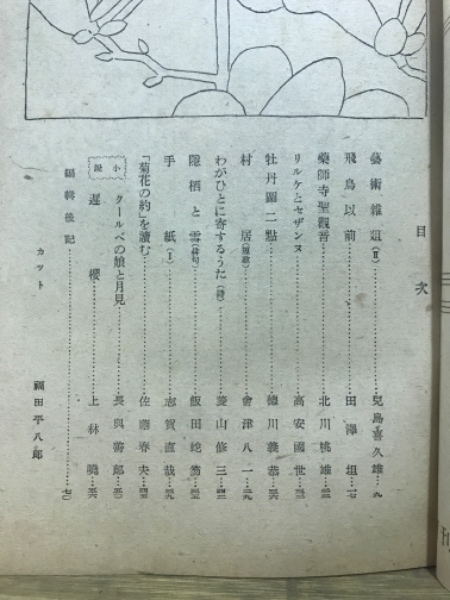 目次
藝術雜爼(Ⅱ)……兒島喜久雄…九
飛鳥以前……田澤坦…一七
藥師寺聖觀音……北川桃雄…
リルケとセザンヌ……高安國世…
牡丹圖二點……德川義恭…
村居(短歌)……會津八一…
わがひとに寄するうた(詩)……菱山修三…
隱栖と雪(俳句)……飯田蛇笏…
手紙(Ⅰ)……志賀直哉…
「菊花の約」を讀む……佐藤春夫…
小說
クールベの娘と月見……長與善郎…
遲櫻……上林曉…
編輯後記……七〇
カット 福田平八郎